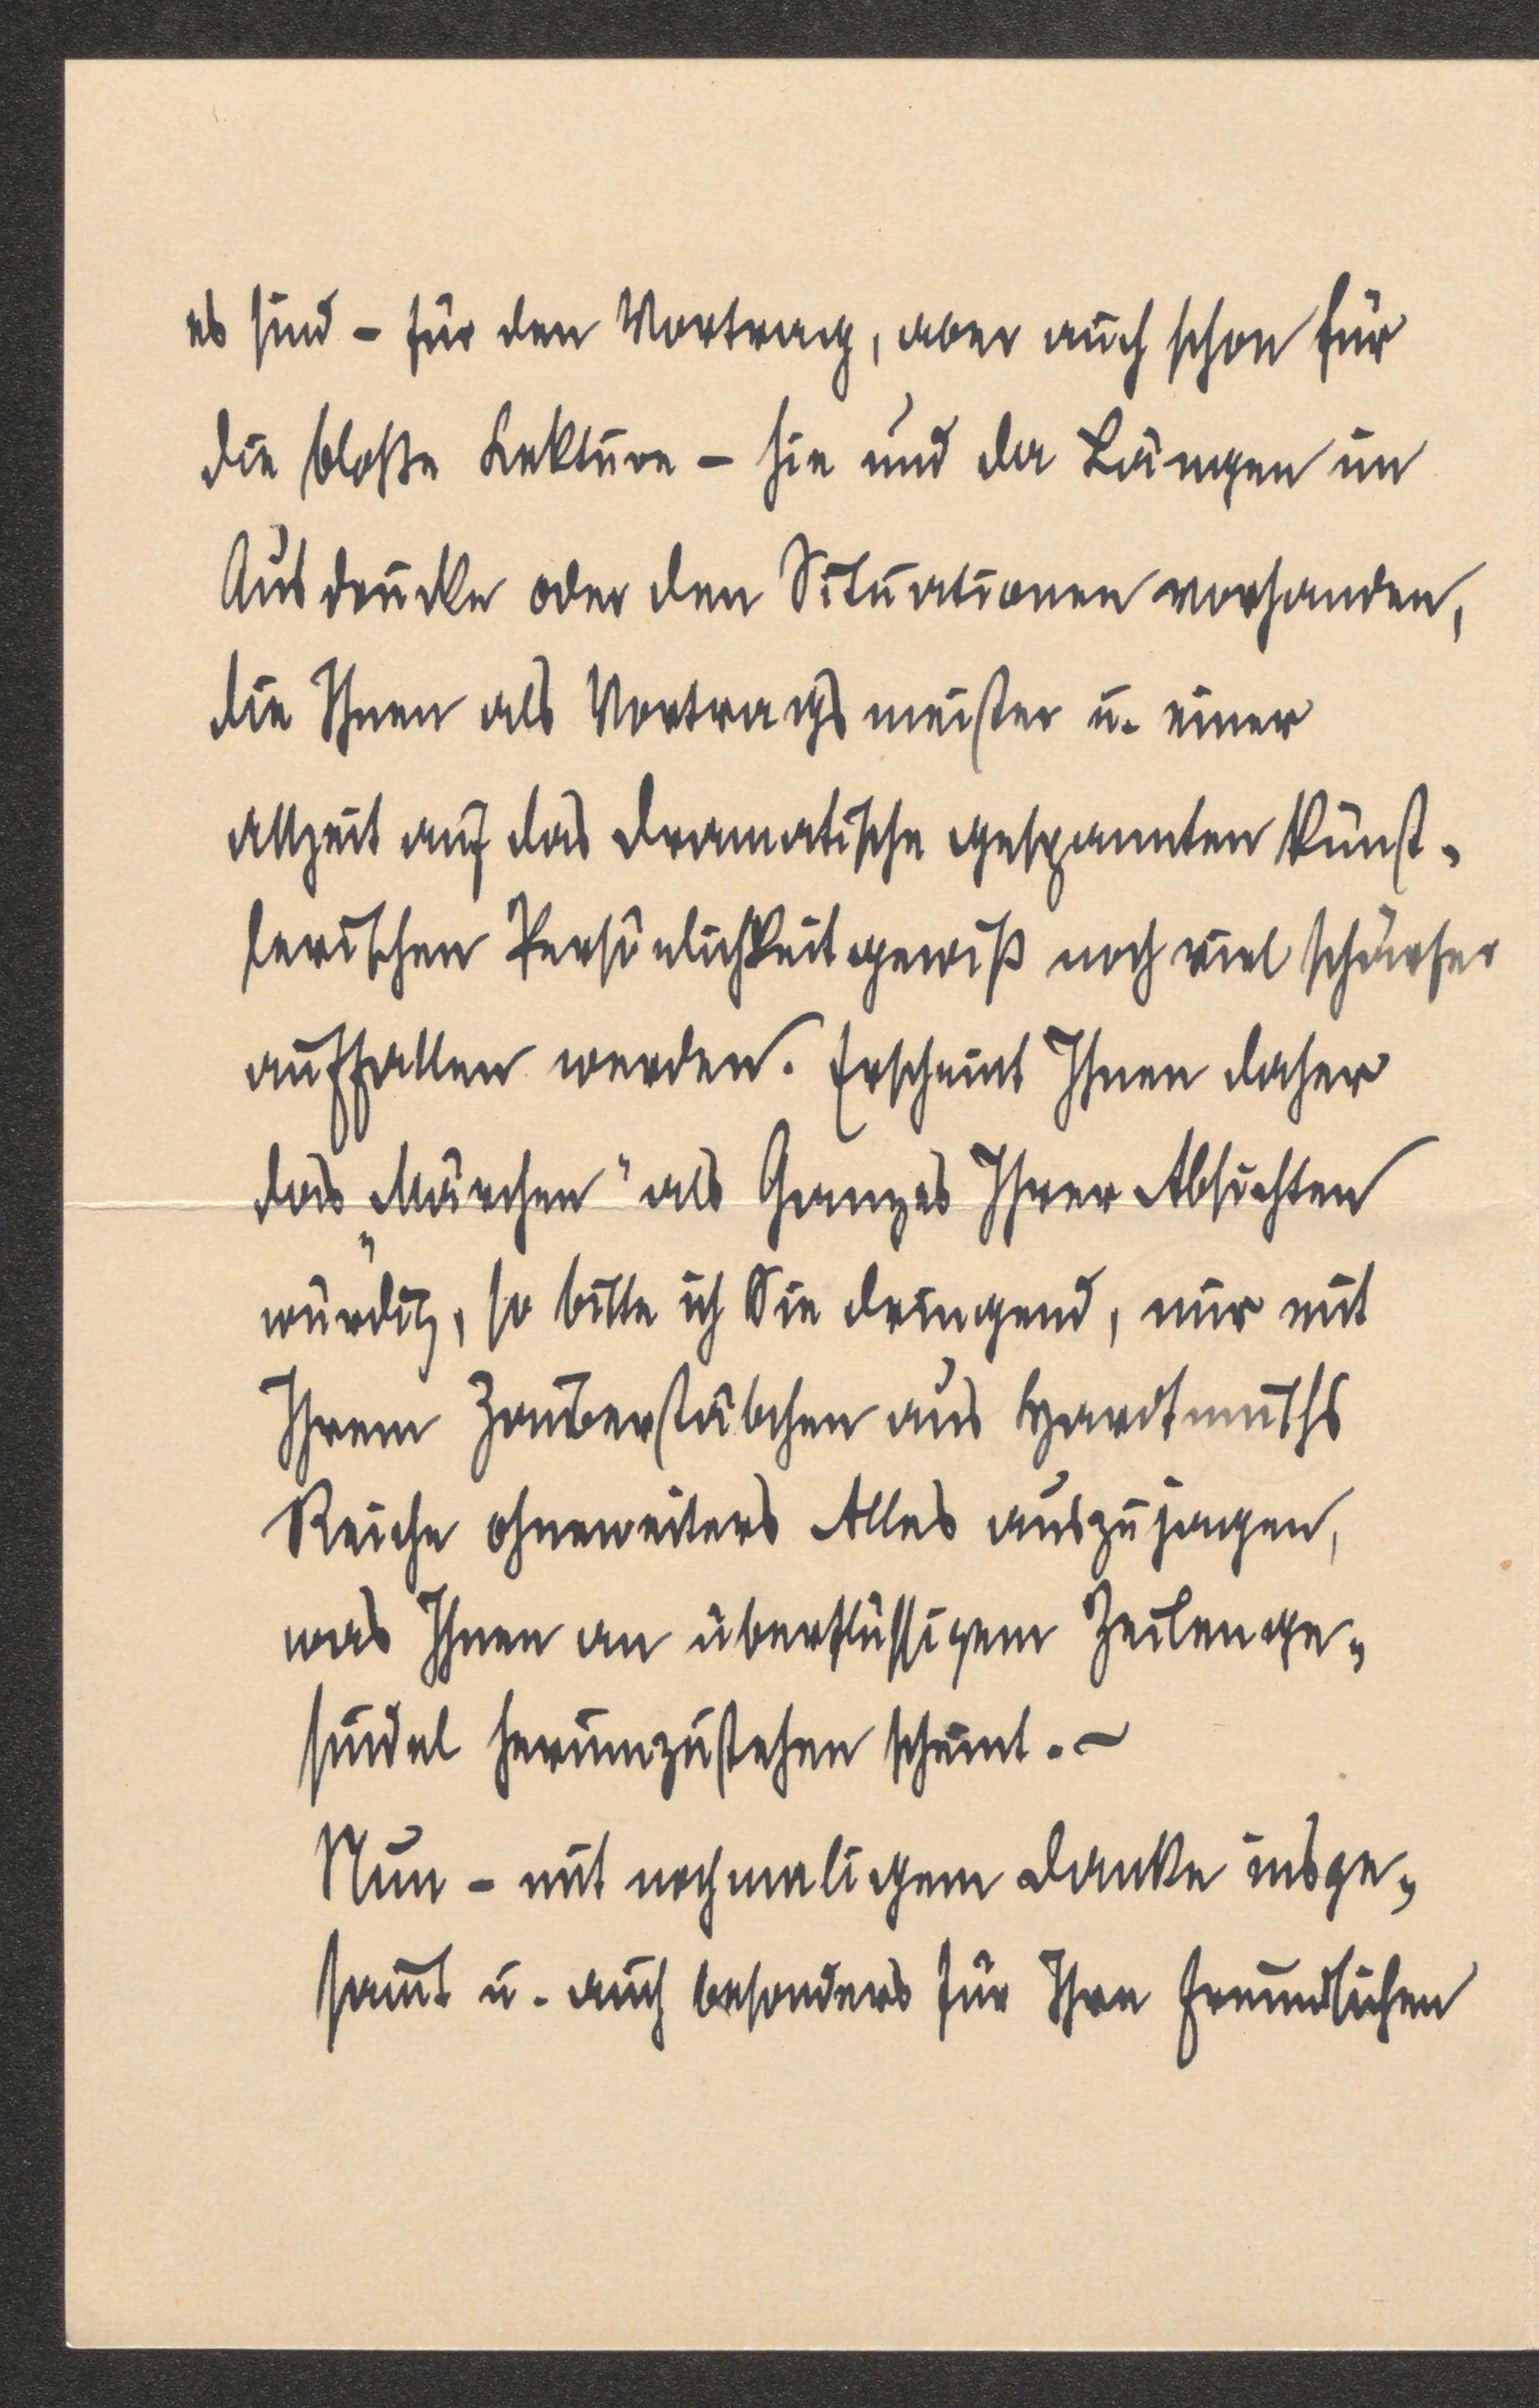 es sind – für den Vortrag, aber auch schon für
die bloße Lektüre – hie und da Längen im
Ausdrucke oder den Situationen vorhanden,
die Ihnen als Vortragsmeister u. einer
allzeit auf das Dramatische gespannten künst-
lerischen Persönlichkeit gewiß noch viel schärfer
auffallen werden. Erscheint Ihnen daher
das „Märchen" als Ganzes Ihrer Absichten
würdig, so bitte ich Sie dringend, nur mit
Ihrem Zauberstäbchen aus Hardtmuths
Reiche ohneweiters Alles auszujagen,
was Ihnen an überflüssigem Zeilenge-
sindel herumzustehen scheint. –
Nun – mit nochmaligem Danke insge-
samt u. auch besonders für Ihre freundlichen